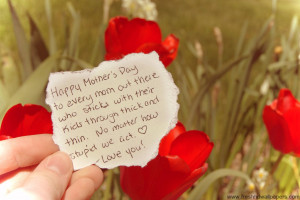 Happy Mother's Day
to every mom out there
who sticks with their
kids through thick and
thin. No matter how
stupid we act. ♡
Love you!